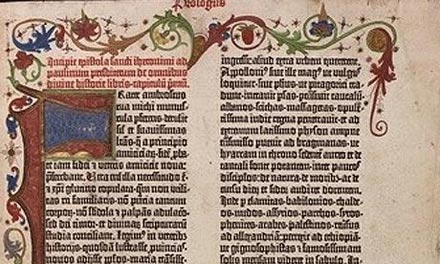 Prologus
Incipit epistola sancti iheronimi ad
paulinum presbiterum de omnibus
divine historie libris·capitulū pmū.
Frater ambrosius
tua michi munus-
cula pferens·detulit
sil et suavissimas
lrās·q̄ a principio
amiciciaꝝ·fidē pba-
te iam fidei ⁊ veteris amicicie nova:
pferebant. Vera eni illa necessitudo ē·
⁊ xpi glutino copulata·qm non utili-
tas rei familiaris·nō pntia tantum
corpoꝝ·nō sbdola ⁊ palpās adulacō·
sed dei timor·et divinaꝝ scripturaꝝ
studia conciliant. Legim⁹ in veterib⁹
historijs·quosdā lustrasse puīcias·
novos adijsse pplos·maria trāsisse·
ingressi: aliud extra urbem quererent.
Apolloni⁹ sive ille mag⁹ ut vulgus
loquitur·sive phus·ut pitagorici tra-
dunt·intravit psas·ptrāsivit caucasū·
albanos·scithas·massagetas·opulē-
tissima indie regna penetravit·et ad
extremum latissimo physon amne
transmisso puenit ad bragmanas·ut
hyarcam in throno sedentē aureo et de
tantali fonte potantem·inter paucos
discipulos·de natura·de moribus ac de
cursu dieꝝ et sideꝝ audiret docentem.
Inde p elamitas·babilonios·chalde-
os·medos·assyrios·parthos·syros·
phenices·arabes·palestinos·reversus
ad allexandriā: perrexit ad ethiopiā·
ut gignosophistas et famosissimam
solis mensam videret in sabulo. In-